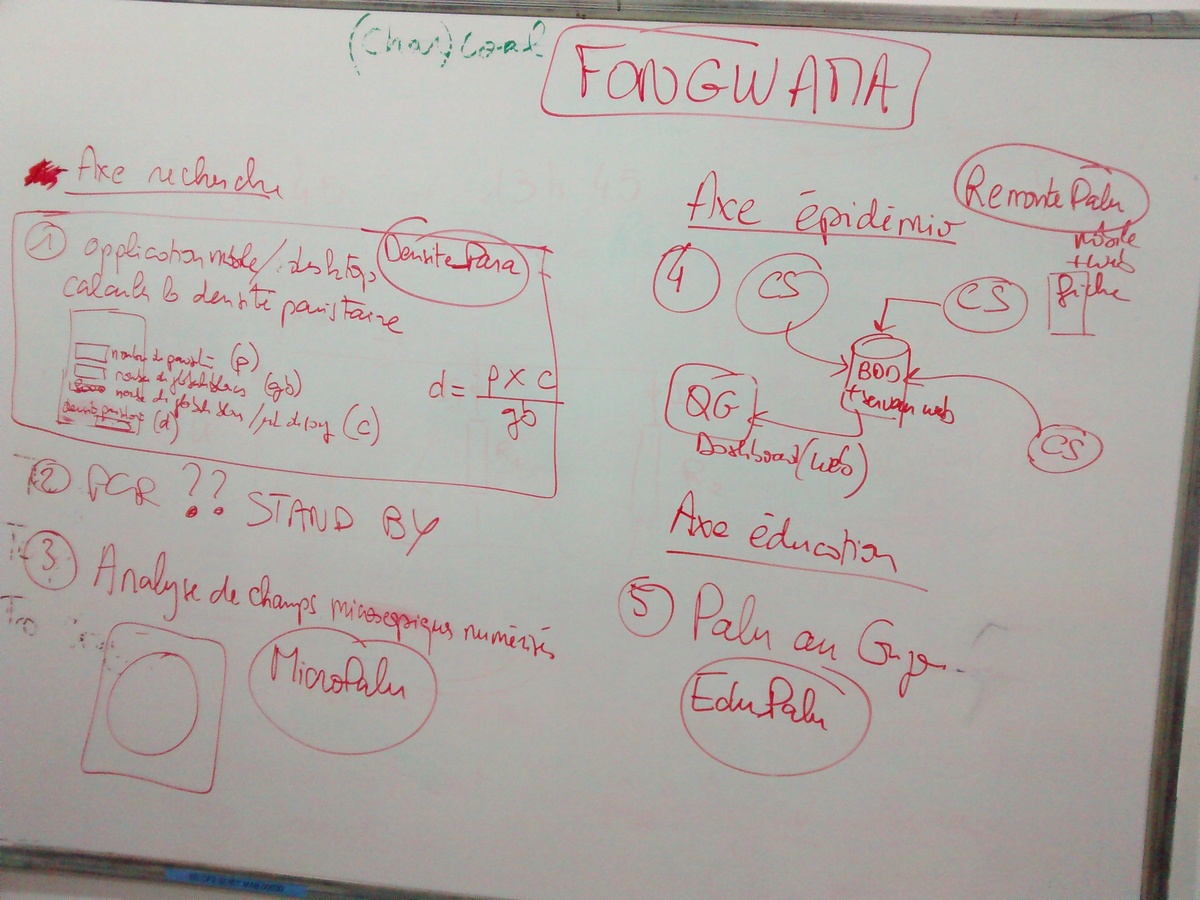 (Char)coal
FONGWAMA
Axe recherche
1 application mobile / desktop
DensitePara
calcule la densité parasitaire
nombre de parasite (p)
nombre de globules blancs (gb)
nombre de globules blancs / µl de sang (C)
densité parasitaire (d)
d = p x c
gb
2 PCR ?? STAND BY
3 Analyse de champs microscopiques numérisés
MicroPalu
Axe épidémio
RemontePalu
mobile
+ web
fiche
4 CS
CS
BDD
+ serveur web
QG
CS
Dashboard (web)
Axe éducation
5 Palu au Guya
EduPalu